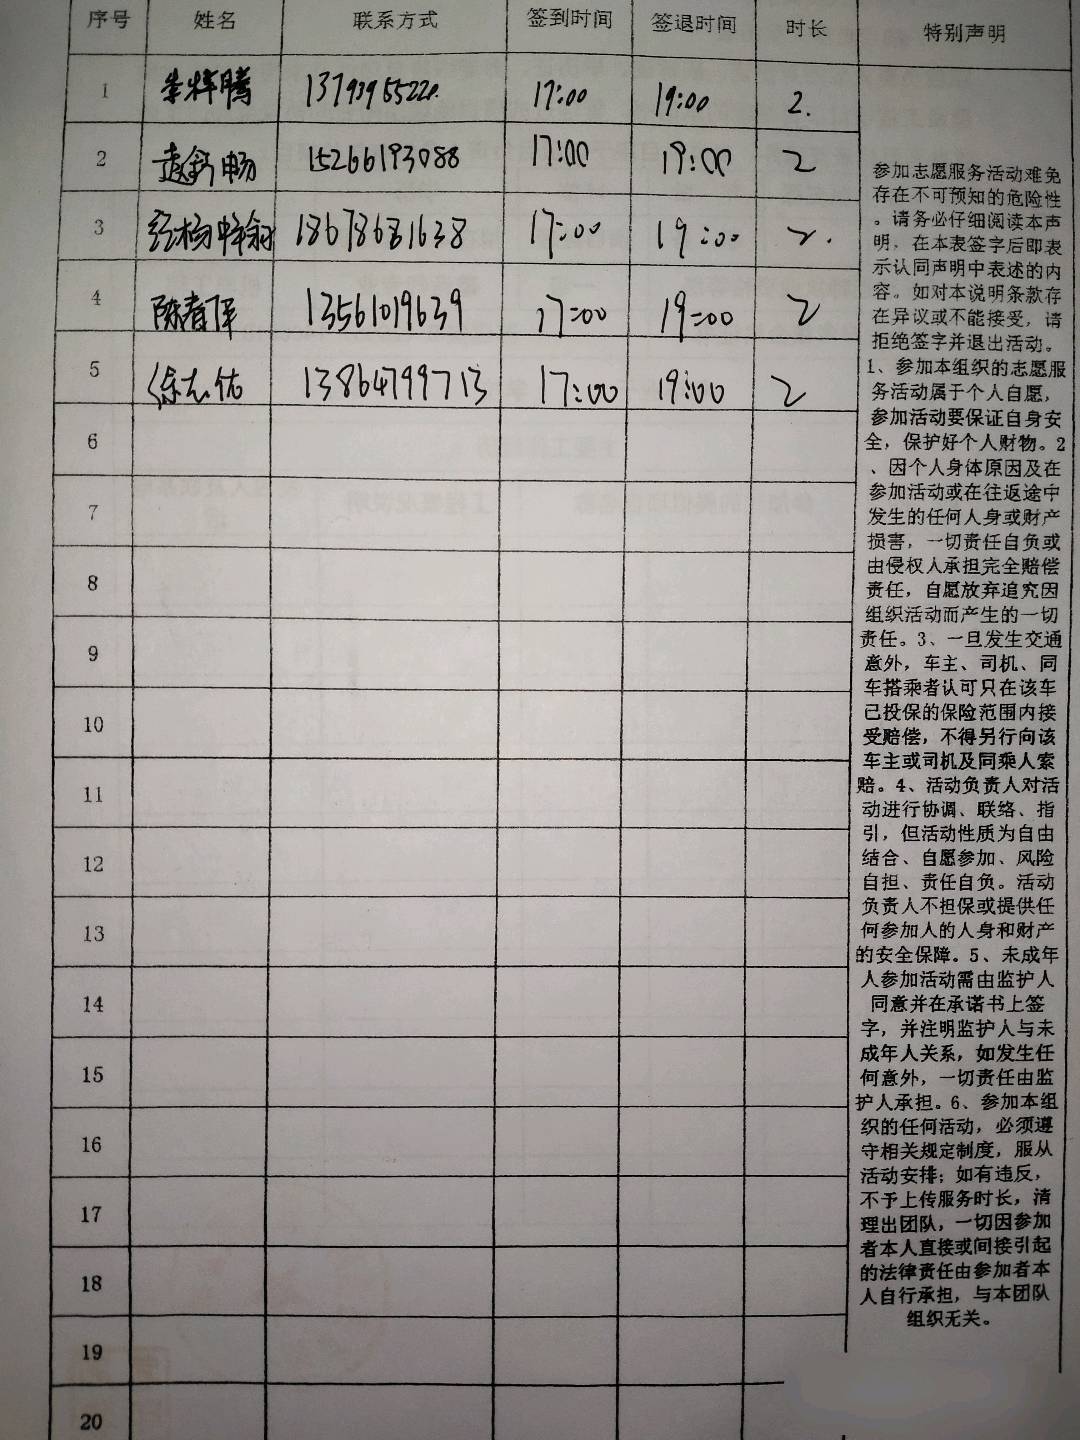 序号 姓名 联系方式 签到时间 签退时间 时长 特别声明
1 17:00 19:00 2.
2 袁舒畅 15266193088 17:00 19:00 2
3 18678681638 17:00 19:00 2.
4 陈春泽 13561019639 17:00 19:00 2
5 徐志佑 13864799713 17:00 19:00 2
6
7
8
9
10
11
12
13
14
15
16
17
18
19
20
参加志愿服务活动难免
存在不可预知的危险性
。请务必仔细阅读本声
明，在本表签字后即表
示认同声明中表述的内
容。如对本说明条款存
在异议或不能接受，请
拒绝签字并退出活动。
1、参加本组织的志愿服
务活动属于个人自愿，
参加活动要保证自身安
全，保护好个人财物。2
、因个人身体原因及在
参加活动或在往返途中
发生的任何人身或财产
损害，一切责任自负或
由侵权人承担完全赔偿
责任，自愿放弃追究因
组织活动而产生的一切
责任。3、一旦发生交通
意外，车主、司机、同
车搭乘者认可只在该车
已投保的保险范围内接
受赔偿，不得另行向该
车主或司机及同乘人索
赔。4、活动负责人对活
动进行协调、联络、指
引，但活动性质为自由
结合、自愿参加、风险
自担、责任自负。活动
负责人不担保或提供任
何参加人的人身和财产
的安全保障。5、未成年
人参加活动需由监护人
同意并在承诺书上签
字，并注明监护人与未
成年人关系，如发生任
何意外，一切责任由监
护人承担。6、参加本组
织的任何活动，必须遵
守相关规定制度，服从
活动安排；如有违反，
不予上传服务时长，清
理出团队，一切因参加
者本人直接或间接引起
的法律责任由参加者本
人自行承担，与本团队
组织无关。